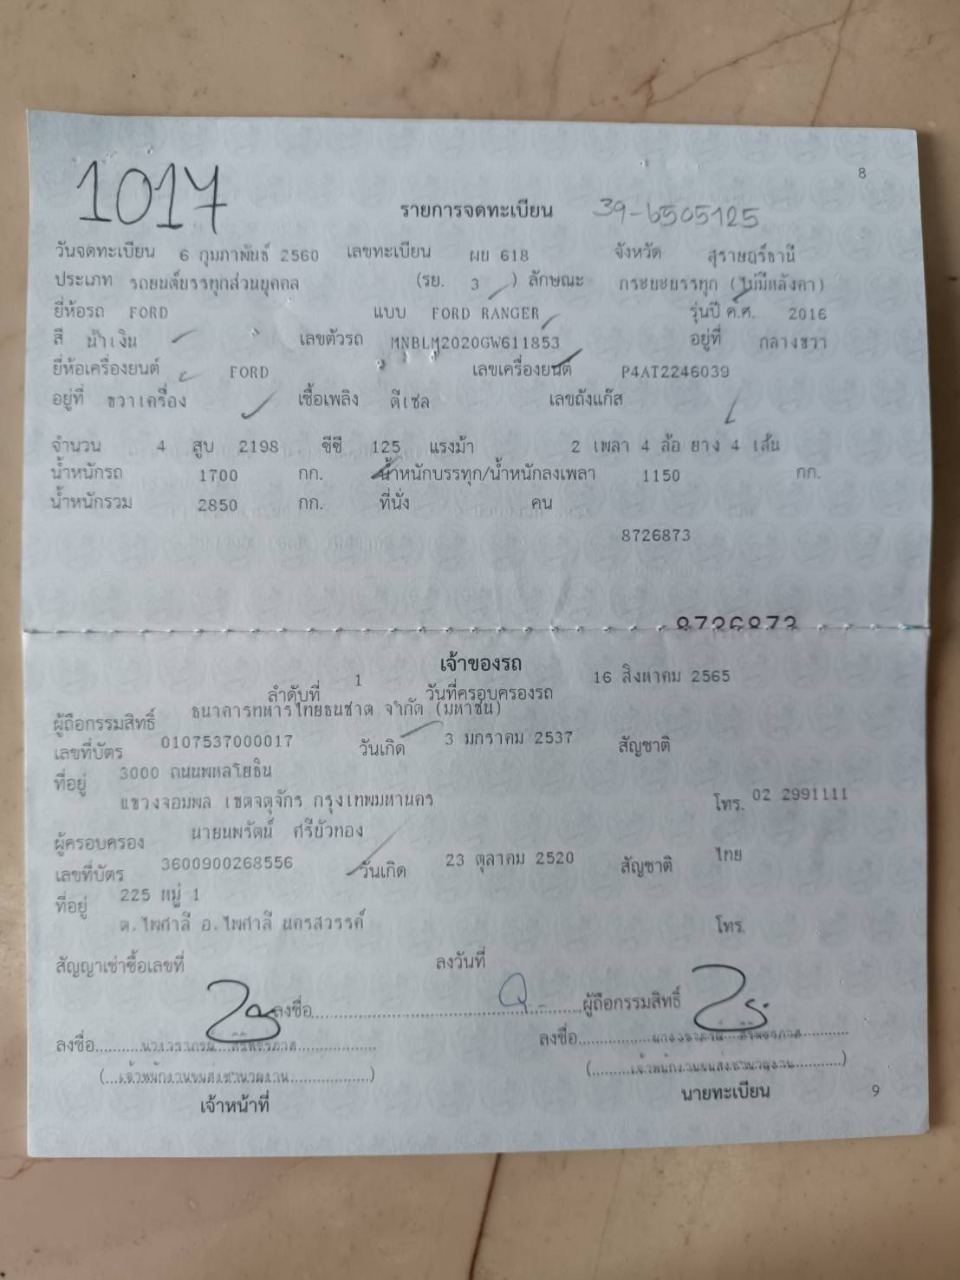 1017
8
รายการจดทะเบียน 39-6505125
วันจดทะเบียน 6 กุมภาพันธ์ 2560 เลขทะเบียน ผย 618 จังหวัด สุราษฎร์ธานี
ประเภท รถยนต์บรรทุกส่วนบุคคล (รย. 3 ) ลักษณะ กระบะบรรทุก (ไม่มีหลังคา)
ยี่ห้อรถ FORD แบบ FORD RANGER รุ่นปี ค.ศ. 2016
สี น้ำเงิน เลขตัวรถ MNBLM2020GW611853 อยู่ที่ กลางขวา
ยี่ห้อเครื่องยนต์ FORD เลขเครื่องยนต์ P4AT2246039
อยู่ที่ ขวาเครื่อง เชื้อเพลิง ดีเซล เลขถังแก๊ส
จำนวน 4 สูบ 2198 ซีซี 125 แรงม้า 2 เพลา 4 ล้อ ยาง 4 เส้น
น้ำหนักรถ 1700 กก. น้ำหนักบรรทุก/น้ำหนักลงเพลา 1150 กก.
น้ำหนักรวม 2850 กก. ที่นั่ง คน
8726873
8726873
เจ้าของรถ
ลำดับที่ 1 วันที่ครอบครองรถ 16 สิงหาคม 2565
ผู้ถือกรรมสิทธิ์ ธนาคารทหารไทยธนชาต จำกัด (มหาชน)
เลขที่บัตร 0107537000017 วันเกิด 3 มกราคม 2537 สัญชาติ
ที่อยู่ 3000 ถนนพหลโยธิน
แขวงจอมพล เขตจตุจักร กรุงเทพมหานคร โทร. 02 2991111
ผู้ครอบครอง นายนพรัตน์ ศรีบัวทอง
เลขที่บัตร 3600900268556 วันเกิด 23 ตุลาคม 2520 สัญชาติ ไทย
ที่อยู่ 225 หมู่ 1
ต.ไพศาลี อ.ไพศาลี นครสวรรค์ โทร.
สัญญาเช่าซื้อเลขที่ ลงวันที่
ลงชื่อ ผู้ถือกรรมสิทธิ์
ลงชื่อ ลงชื่อ
(เจ้าพนักงานขนส่งชำนาญงาน) (เจ้าพนักงานขนส่งชำนาญงาน)
เจ้าหน้าที่ นายทะเบียน 9